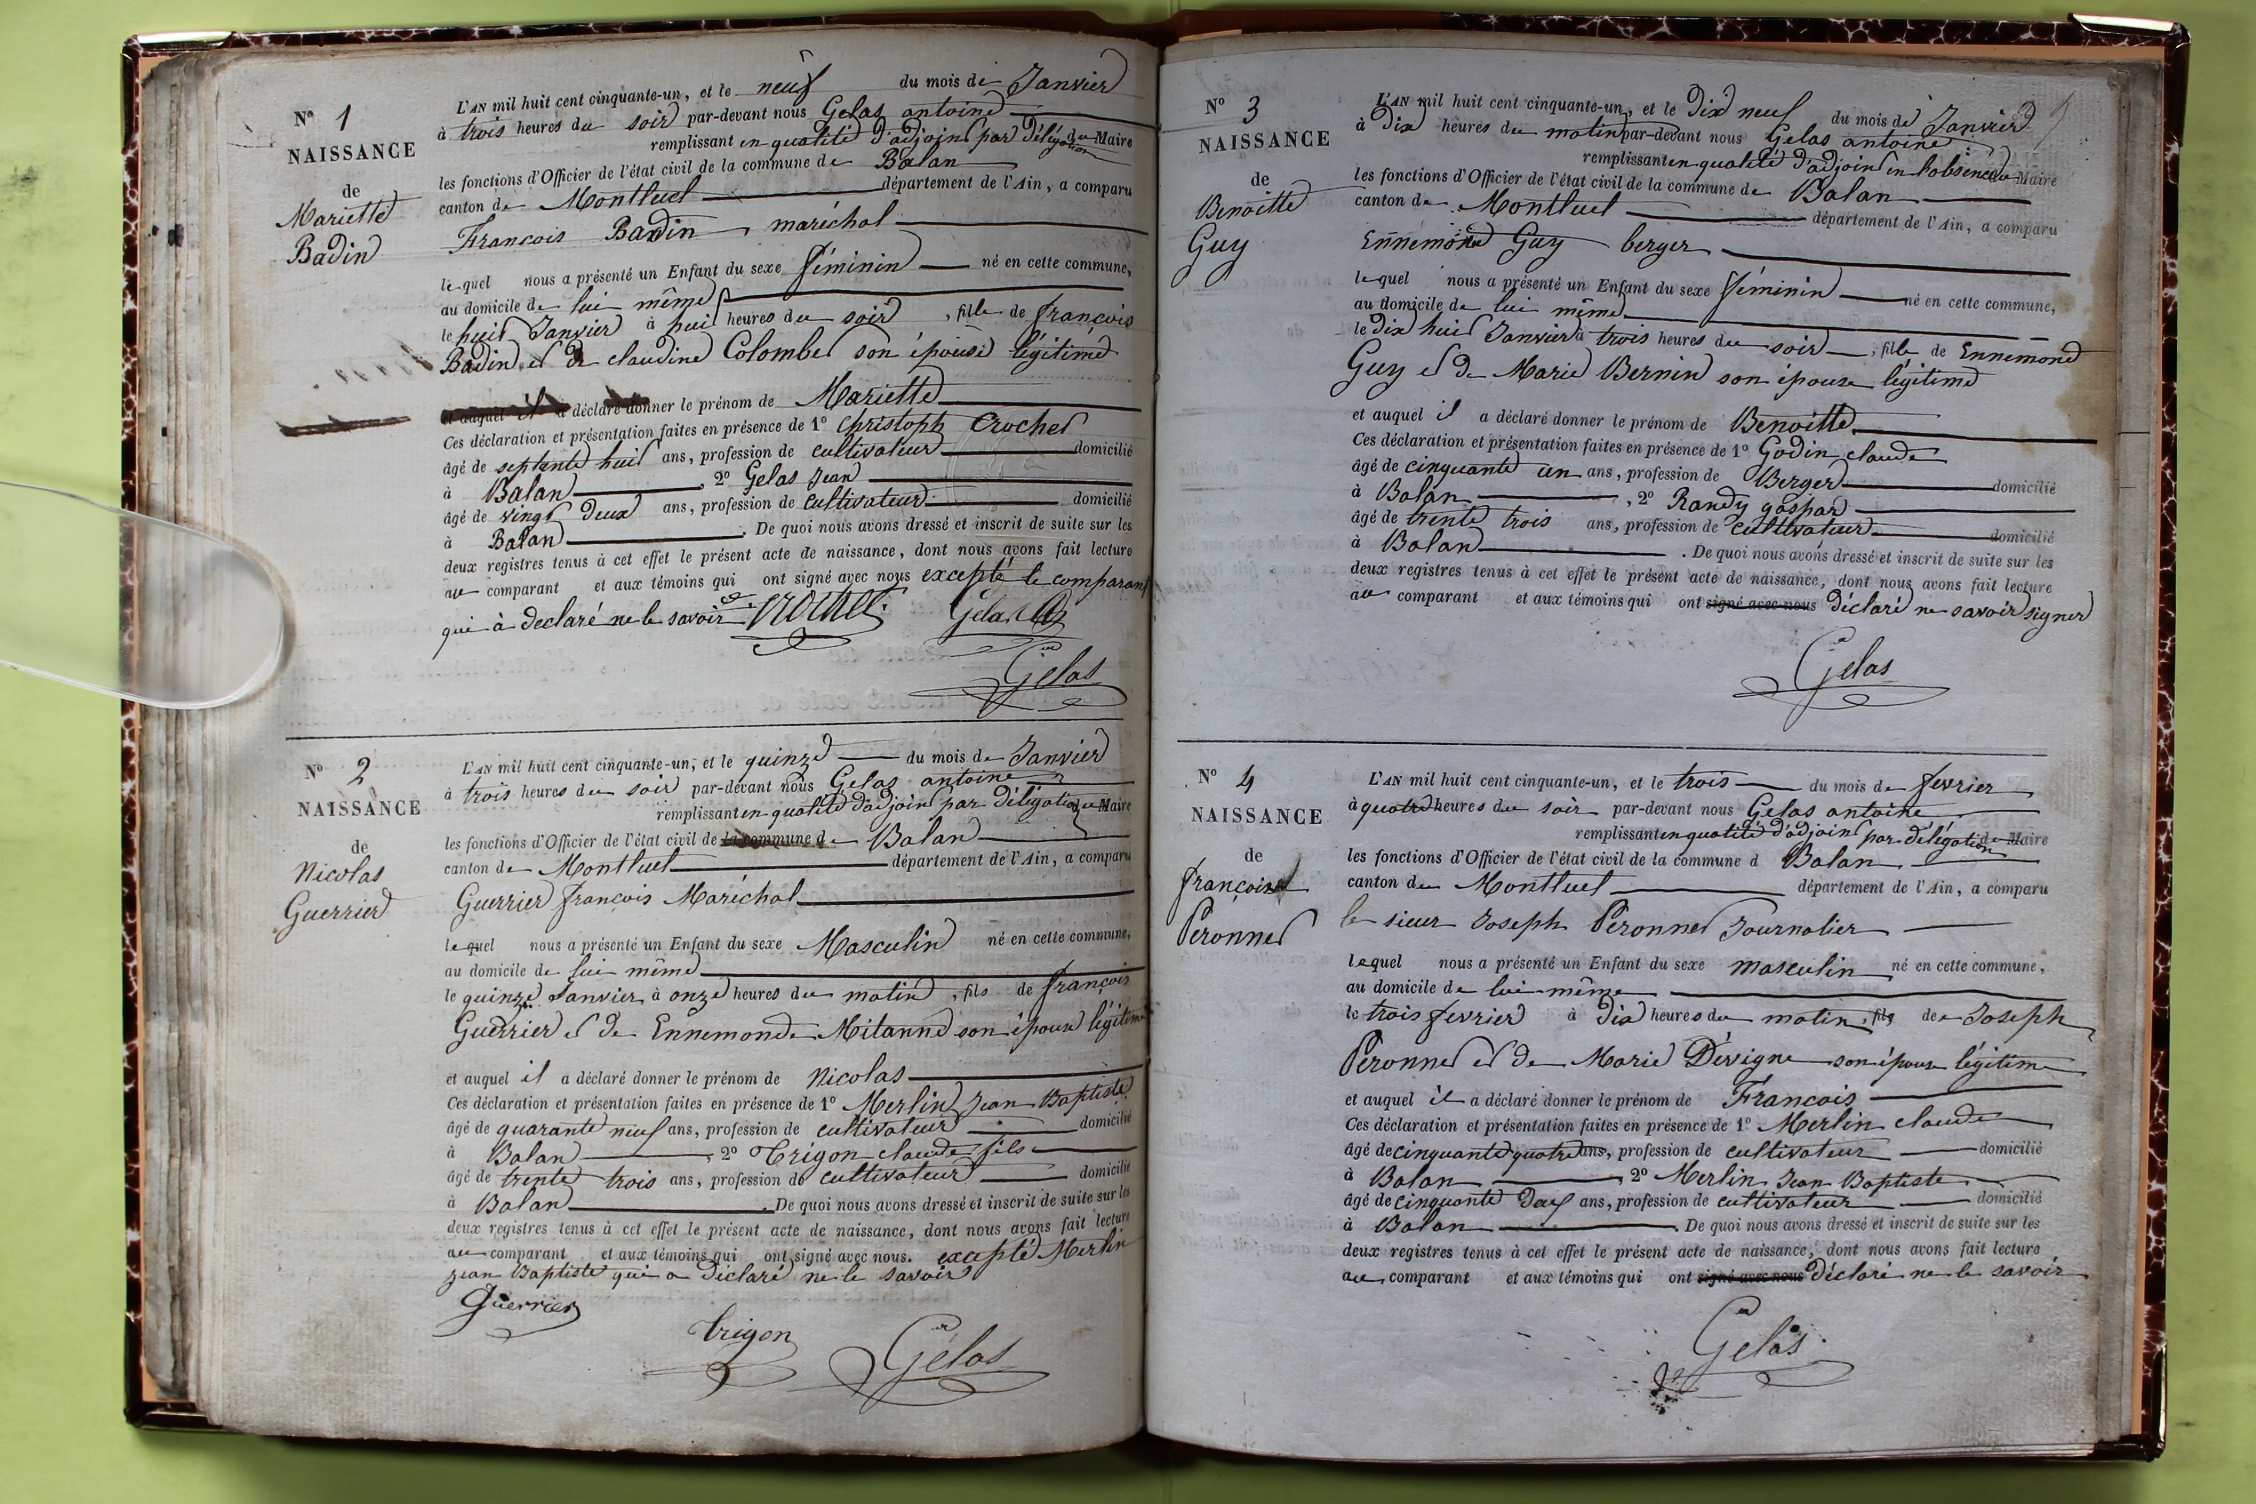 Nº 1
NAISSANCE
de
Mariette
Badin
L'AN mil huit cent cinquante-un, et le neuf du mois de Janvier
à trois heures du soir par-devant nous Gelas antoine
remplissant en qualité d'adjoint par délégation du Maire
les fonctions d'Officier de l'état civil de la commune de Balan
canton de Montluel département de l'Ain, a comparu
François Badin maréchal
lequel nous a présenté un Enfant du sexe féminin né en cette commune,
au domicile de lui même
le huit Janvier à huit heures du soir, fille de françois
Badin et de claudine Colombet son épouse légitime
et auquel il a déclaré donner le prénom de Mariette
Ces déclaration et présentation faites en présence de 1º Christoph Crochet
âgé de septente huit ans, profession de cultivateur domicilié
à Balan, 2º Gelas Jean
âgé de vingt deux ans, profession de cultivateur domicilié
à Balan. De quoi nous avons dressé et inscrit de suite sur les
deux registres tenus à cet effet le présent acte de naissance, dont nous avons fait lecture
au comparant et aux témoins qui ont signé avec nous excepté le comparant
qui à declaré ne le savoir Crochet Gelas
Gelas
Nº 2
NAISSANCE
de
Nicolas
Guerrier
L'AN mil huit cent cinquante-un, et le quinze du mois de Janvier
à trois heures du soir par-devant nous Gelas antoine
remplissant en qualité d'adjoint par délégation du Maire
les fonctions d'Officier de l'état civil de la commune de Balan
canton de Montluel département de l'Ain, a comparu
Guerrier françois Maréchal
lequel nous a présenté un Enfant du sexe Masculin né en cette commune,
au domicile de lui même
le quinze Janvier à onze heures du matin, fils de françois
Guerrier et de Ennemonde Mitanne son épouse légitime
et auquel il a déclaré donner le prénom de Nicolas
Ces déclaration et présentation faites en présence de 1º Merlin Jean Baptiste
âgé de quarante neuf ans, profession de cultivateur domicilié
à Balan, 2º Trigon claude fils
âgé de trente trois ans, profession de cultivateur domicilié
à Balan. De quoi nous avons dressé et inscrit de suite sur les
deux registres tenus à cet effet le présent acte de naissance, dont nous avons fait lecture
au comparant et aux témoins qui ont signé avec nous. excepté Merlin
Jean Baptiste qui a déclaré ne le savoir
Guerrier
Trigon Gélas
Nº 3
NAISSANCE
de
Benoitte
Guy
L'AN mil huit cent cinquante-un, et le dix neuf du mois de Janvier
à dix heures du matin par-devant nous Gelas antoine
remplissant en qualité d'adjoint en l'absence du Maire
les fonctions d'Officier de l'état civil de la commune de Balan
canton de Montluel département de l'Ain, a comparu
Ennemond Guy berger
lequel nous a présenté un Enfant du sexe féminin né en cette commune,
au domicile de lui même
le dix huit Janvier à trois heures du soir, fille de Ennemond
Guy et de Marie Bernin son épouse légitime
et auquel il a déclaré donner le prénom de Benoitte
Ces déclaration et présentation faites en présence de 1º Godin claude
âgé de cinquante un ans, profession de Berger domicilié
à Balan, 2º Randy gaspar
âgé de trente trois ans, profession de cultivateur domicilié
à Balan. De quoi nous avons dressé et inscrit de suite sur les
deux registres tenus à cet effet le présent acte de naissance, dont nous avons fait lecture
au comparant et aux témoins qui ont signé avec nous déclaré ne savoir signer
Gelas
Nº 4
NAISSANCE
de
françois
Peronnet
L'AN mil huit cent cinquante-un, et le trois du mois de fevrier
à quatre heures du soir par-devant nous Gelas antoine
remplissant en qualité d'adjoint par délégation du Maire
les fonctions d'Officier de l'état civil de la commune d Balan
canton de Montluel département de l'Ain, a comparu
le sieur Joseph Peronnet Journalier
lequel nous a présenté un Enfant du sexe masculin né en cette commune,
au domicile de lui-même
le trois fevrier à dix heures du matin, fils de Joseph
Peronnet et de Marie Dévigne son épouse légitime
et auquel il a déclaré donner le prénom de Francois
Ces déclaration et présentation faites en présence de 1º Merlin claude
âgé de cinquante quatre ans, profession de cultivateur domicilié
à Balan, 2º Merlin Jean Baptiste
âgé de cinquante ans, profession de cultivateur domicilié
à Balan. De quoi nous avons dressé et inscrit de suite sur les
deux registres tenus à cet effet le présent acte de naissance, dont nous avons fait lecture
au comparant et aux témoins qui ont signé avec nous déclaré ne le savoir
Gelas